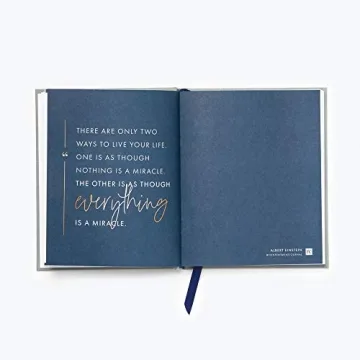 THERE ARE ONLY TWO
WAYS TO LIVE YOUR LIFE.
“
ONE IS AS THOUGH
NOTHING IS A MIRACLE.
THE OTHER IS AS THOUGH
everything
IS A MIRACLE.
ALBERT EINSTEIN